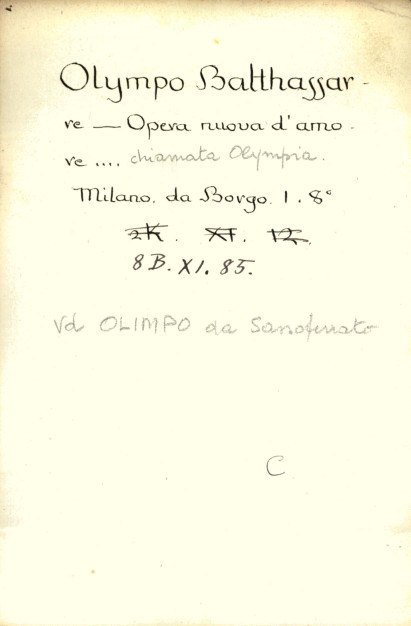 Olympo Balthassar-
re — Opera nuova d'amo-
re .... chiamata Olympia.
Milano. da Borgo. 1. 8°
2K. XI. 12.
8B. XI. 85.
Vd OLIMPO da Sassoferrato
C